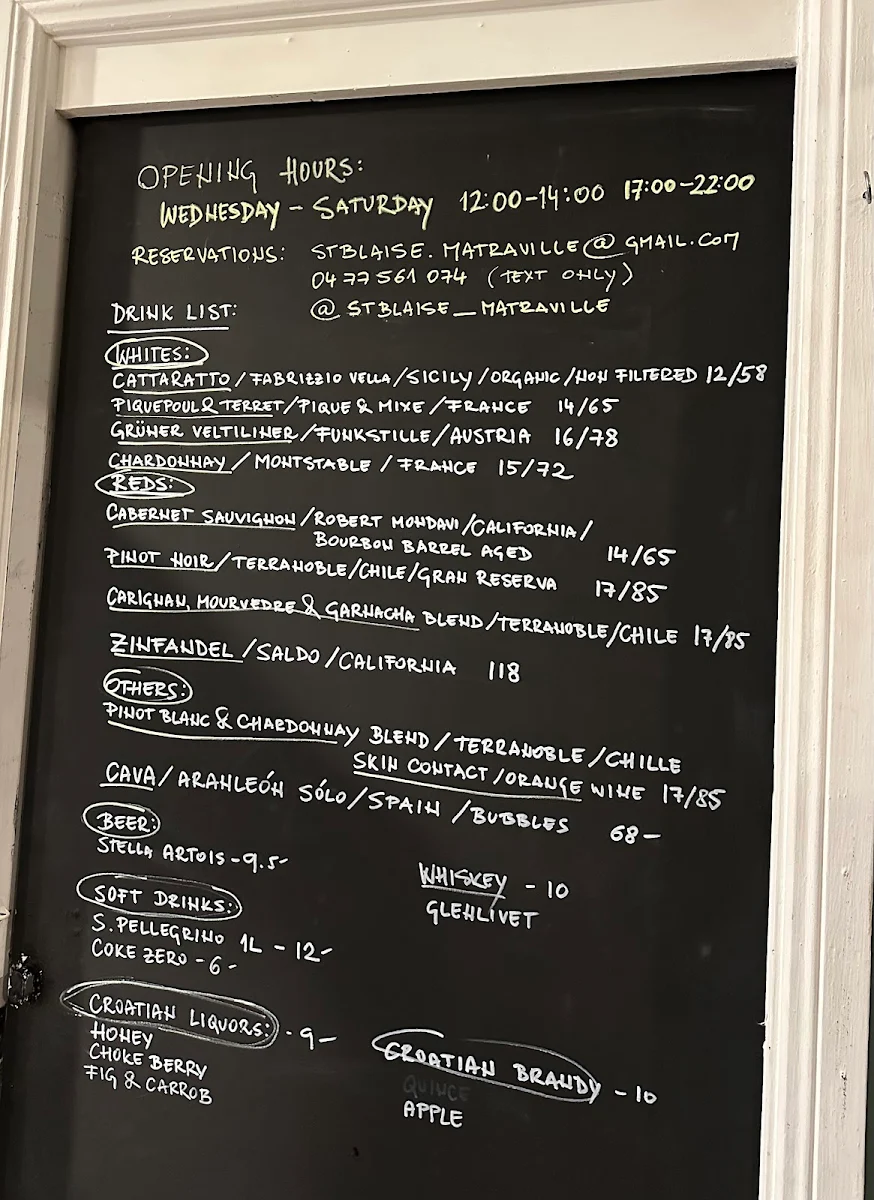 OPENING HOURS:
WEDNESDAY - SATURDAY 12:00-14:00 17:00-22:00
RESERVATIONS: STBLAISE.MATRAVILLE@GMAIL.COM
0477561 074 (TEXT ONLY)
@STBLAISE_MATRAVILLE
DRINK LIST:
WHITES:
CATTARATTO/FABRIZZIO VELLA/SICILY/ORGANIC/NON FILTERED 12/58
PIQUEPOUL & TERRET/PIQUE & MIXE/FRANCE 14/65
GRÜNER VELTILINER/FUNKSTILLE/AUSTRIA 16/78
CHARDONNAY/MONTSTABLE/FRANCE 15/72
REDS:
CABERNET SAUVIGNON/ROBERT MONDAVI/CALIFORNIA/
BOURBON BARREL AGED 14/65
PINOT NOIR/TERRANOBLE/CHILE/GRAN RESERVA 17/85
CARIGNAN, MOURVEDRE & GARNACHA BLEND/TERRANOBLE/CHILE 17/85
ZINFANDEL/SALDO/CALIFORNIA 118
OTHERS:
PINOT BLANC & CHARDONNAY BLEND/TERRANOBLE/CHILLE
SKIN CONTACT/ORANGE WINE 17/85
CAVA/ARANLEÓN SÓLO/SPAIN/BUBBLES 68-
BEER:
STELLA ARTOIS-9.5-
WHISKEY - 10
GLENLIVET
SOFT DRINKS:
S.PELLEGRINO 1L - 12-
COKE ZERO - 6-
CROATIAN LIQUORS: - 9-
HONEY
CHOKE BERRY
FIG & CARROB
CROATIAN BRANDY - 10
QUINCE
APPLE